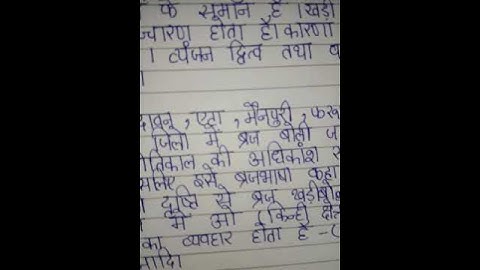 के समान है । खड़ी
च्चारण होता है। कारण
। व्यंजन द्वित्व तथा
, एटा , मैनपुरी ,
जिलों में ब्रज बोली
की अधिकांश
इसे ब्रजभाषा कहा
दृष्टि से ब्रज खड़ीबोल
में ओ (किन्हीं क्षे
का व्यवहार होता है -(